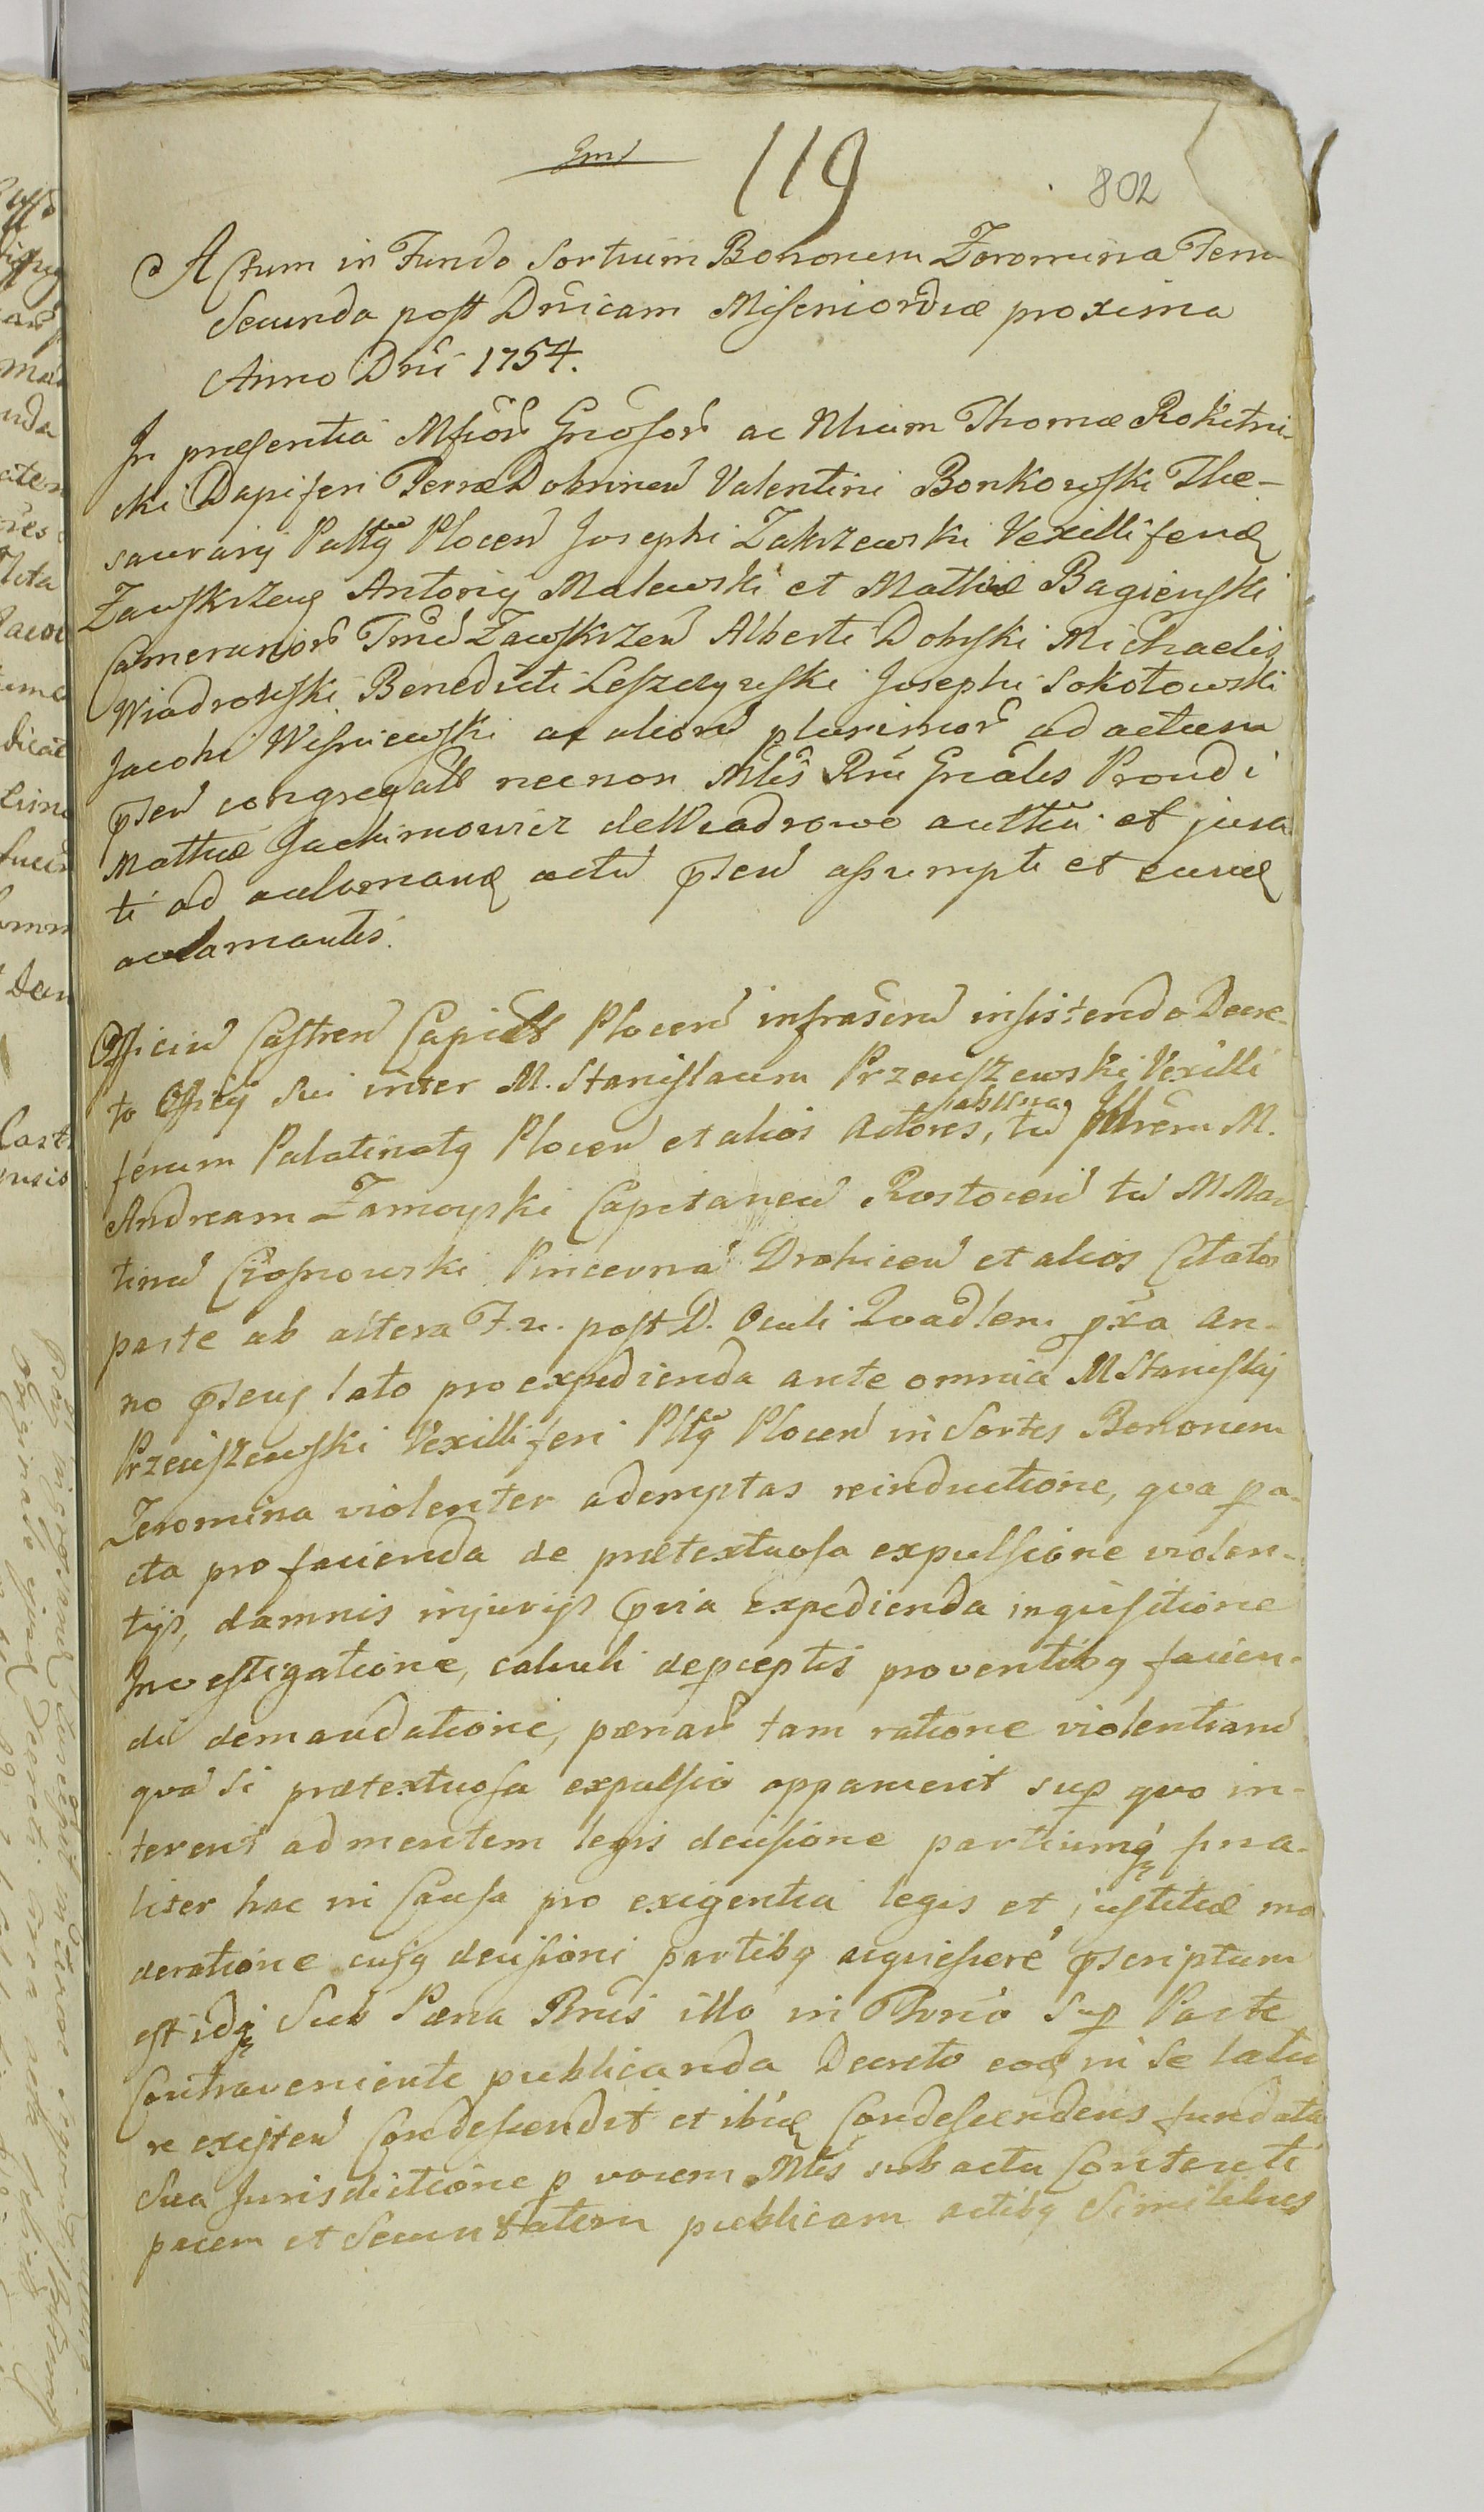 119
802
Actum in Fundo Sortium Bonorum Zoromina Feria
Secunda post Dnicam Misericordiæ proxima
Anno Dni 1754.
In præsentia Mfcor Gnosor ac Nlium Thomæ Rokitni-
cki Dapiferi Terræ Dobrinen Valentini Bonkowski The-
saurarij Plocen Josephi Zakrzewski Vexilliferi
Zawskrzen Antonij Malewski et Mathiæ Bagienski
Camerarior Zawskrzen Alberti Dobrski Michaelis
Wiadrowski Benedicti Leszczynski Josephi Sokołowski
Jacobi Wisniewski ac alior plurimor ad actum
psen congregat necnon Mlis Rni Gnalis Providi
Mathiæ Jachimowicz de Wiadrowo auttci et jura
ti ad acclamand actu psen assumpti et eund
acclamantis.
Officiu Castren Capitle Plocen infrascru insistendo Decre-
to Officij sui inter M. Stanislaum Przeuszewski Vexilli
ferum Palatinatq Plocen et alios Actores, tu Illrem M.
Andream Zamoyski Capitaneu Rostocen tu M Mar
tinu Ciosnowski Pincerna Drohicen et alios Citatos
parte ab altera F. 2. post D. Oculi Quadlem pxa An-
no psenq lato pro expedienda ante omnia M Stanislaj
Przeuszewski Vexilliferi Pltq Plocen in Sortes Bonorum
Zeromina violenter ademptas reinductione, qva pa-
cta pro facienda de prætextuosa expulsione violen-
tijs, damnis injurijs qvia expedienda inquisitione
Investigatione, calculi de pceptis proventibq facien-
di demandatione, pænar tam ratione violentiaru
qva si prætextuosa expulsio apparuerit sup qvo in-
teren ad mentem legis decisione partiumq fina-
liter hac in Causa pro exigentia legis et justitiæ mo
deratione cujq decisioni partibq acqviescere pscriptum
est idq Sub Pæna Bnis illo in Thrio Sup Parte
Contraveniente publicanda Decreto eod in se latio
re existen Condescendit et ibid Condescendens fundata
Sua Jurisdictione p vocem Mlis sub actu Contenti
pacem et Securitatem publicam actibq similibus